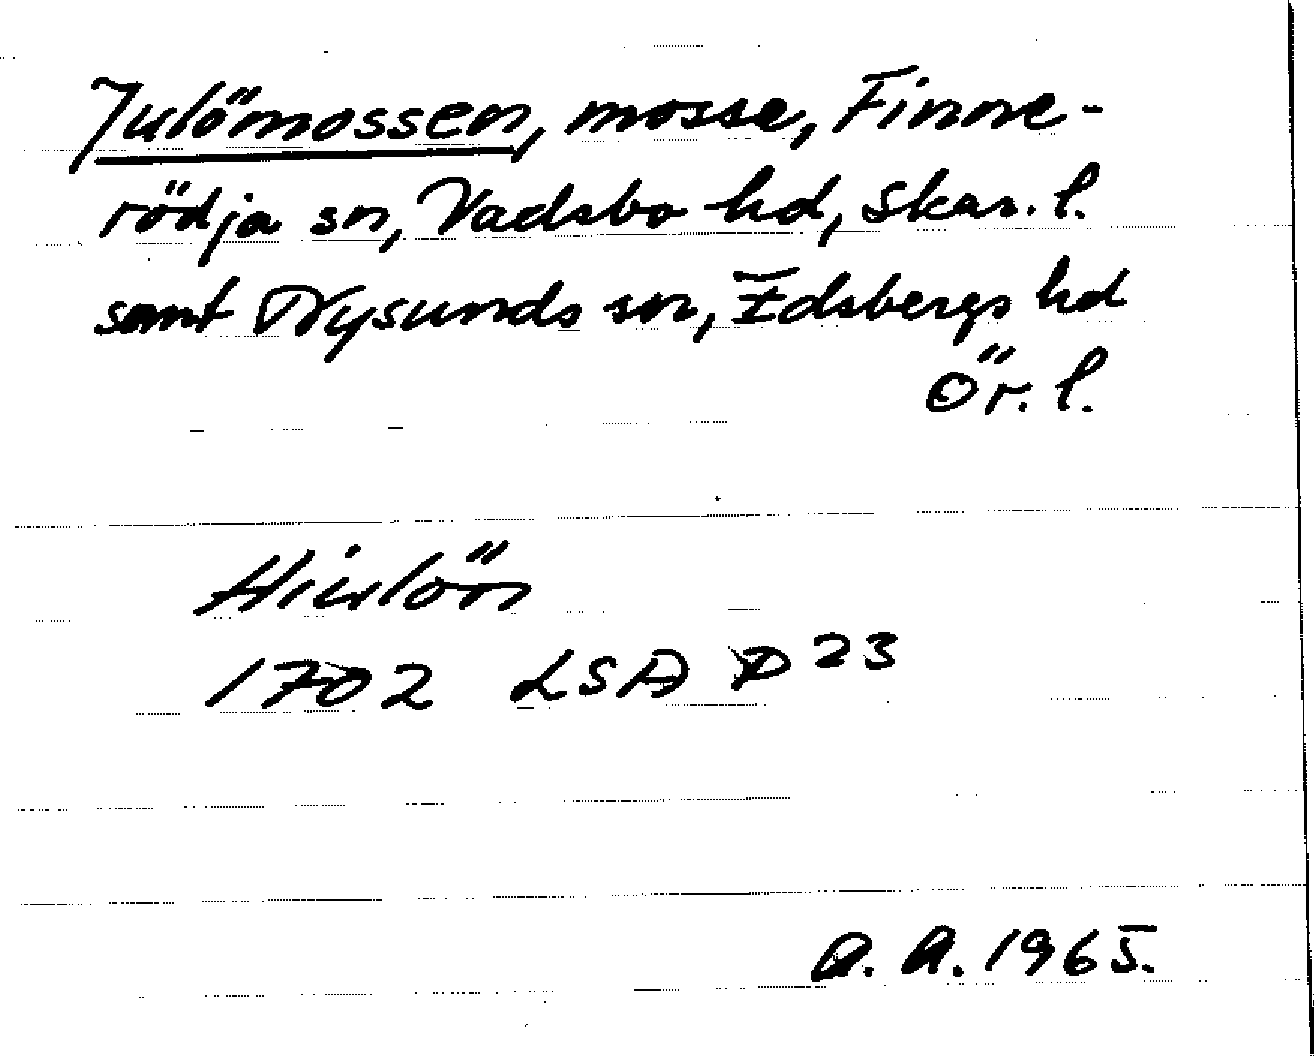 Julömossen, mosse, Finne-
rödja sn, Vadsbo hd, Skar. l.
samt Nysunds sn, Edsbergs hd
Ör. l.
Hiulöön
1702 LSA P 23
A. A. 1965.